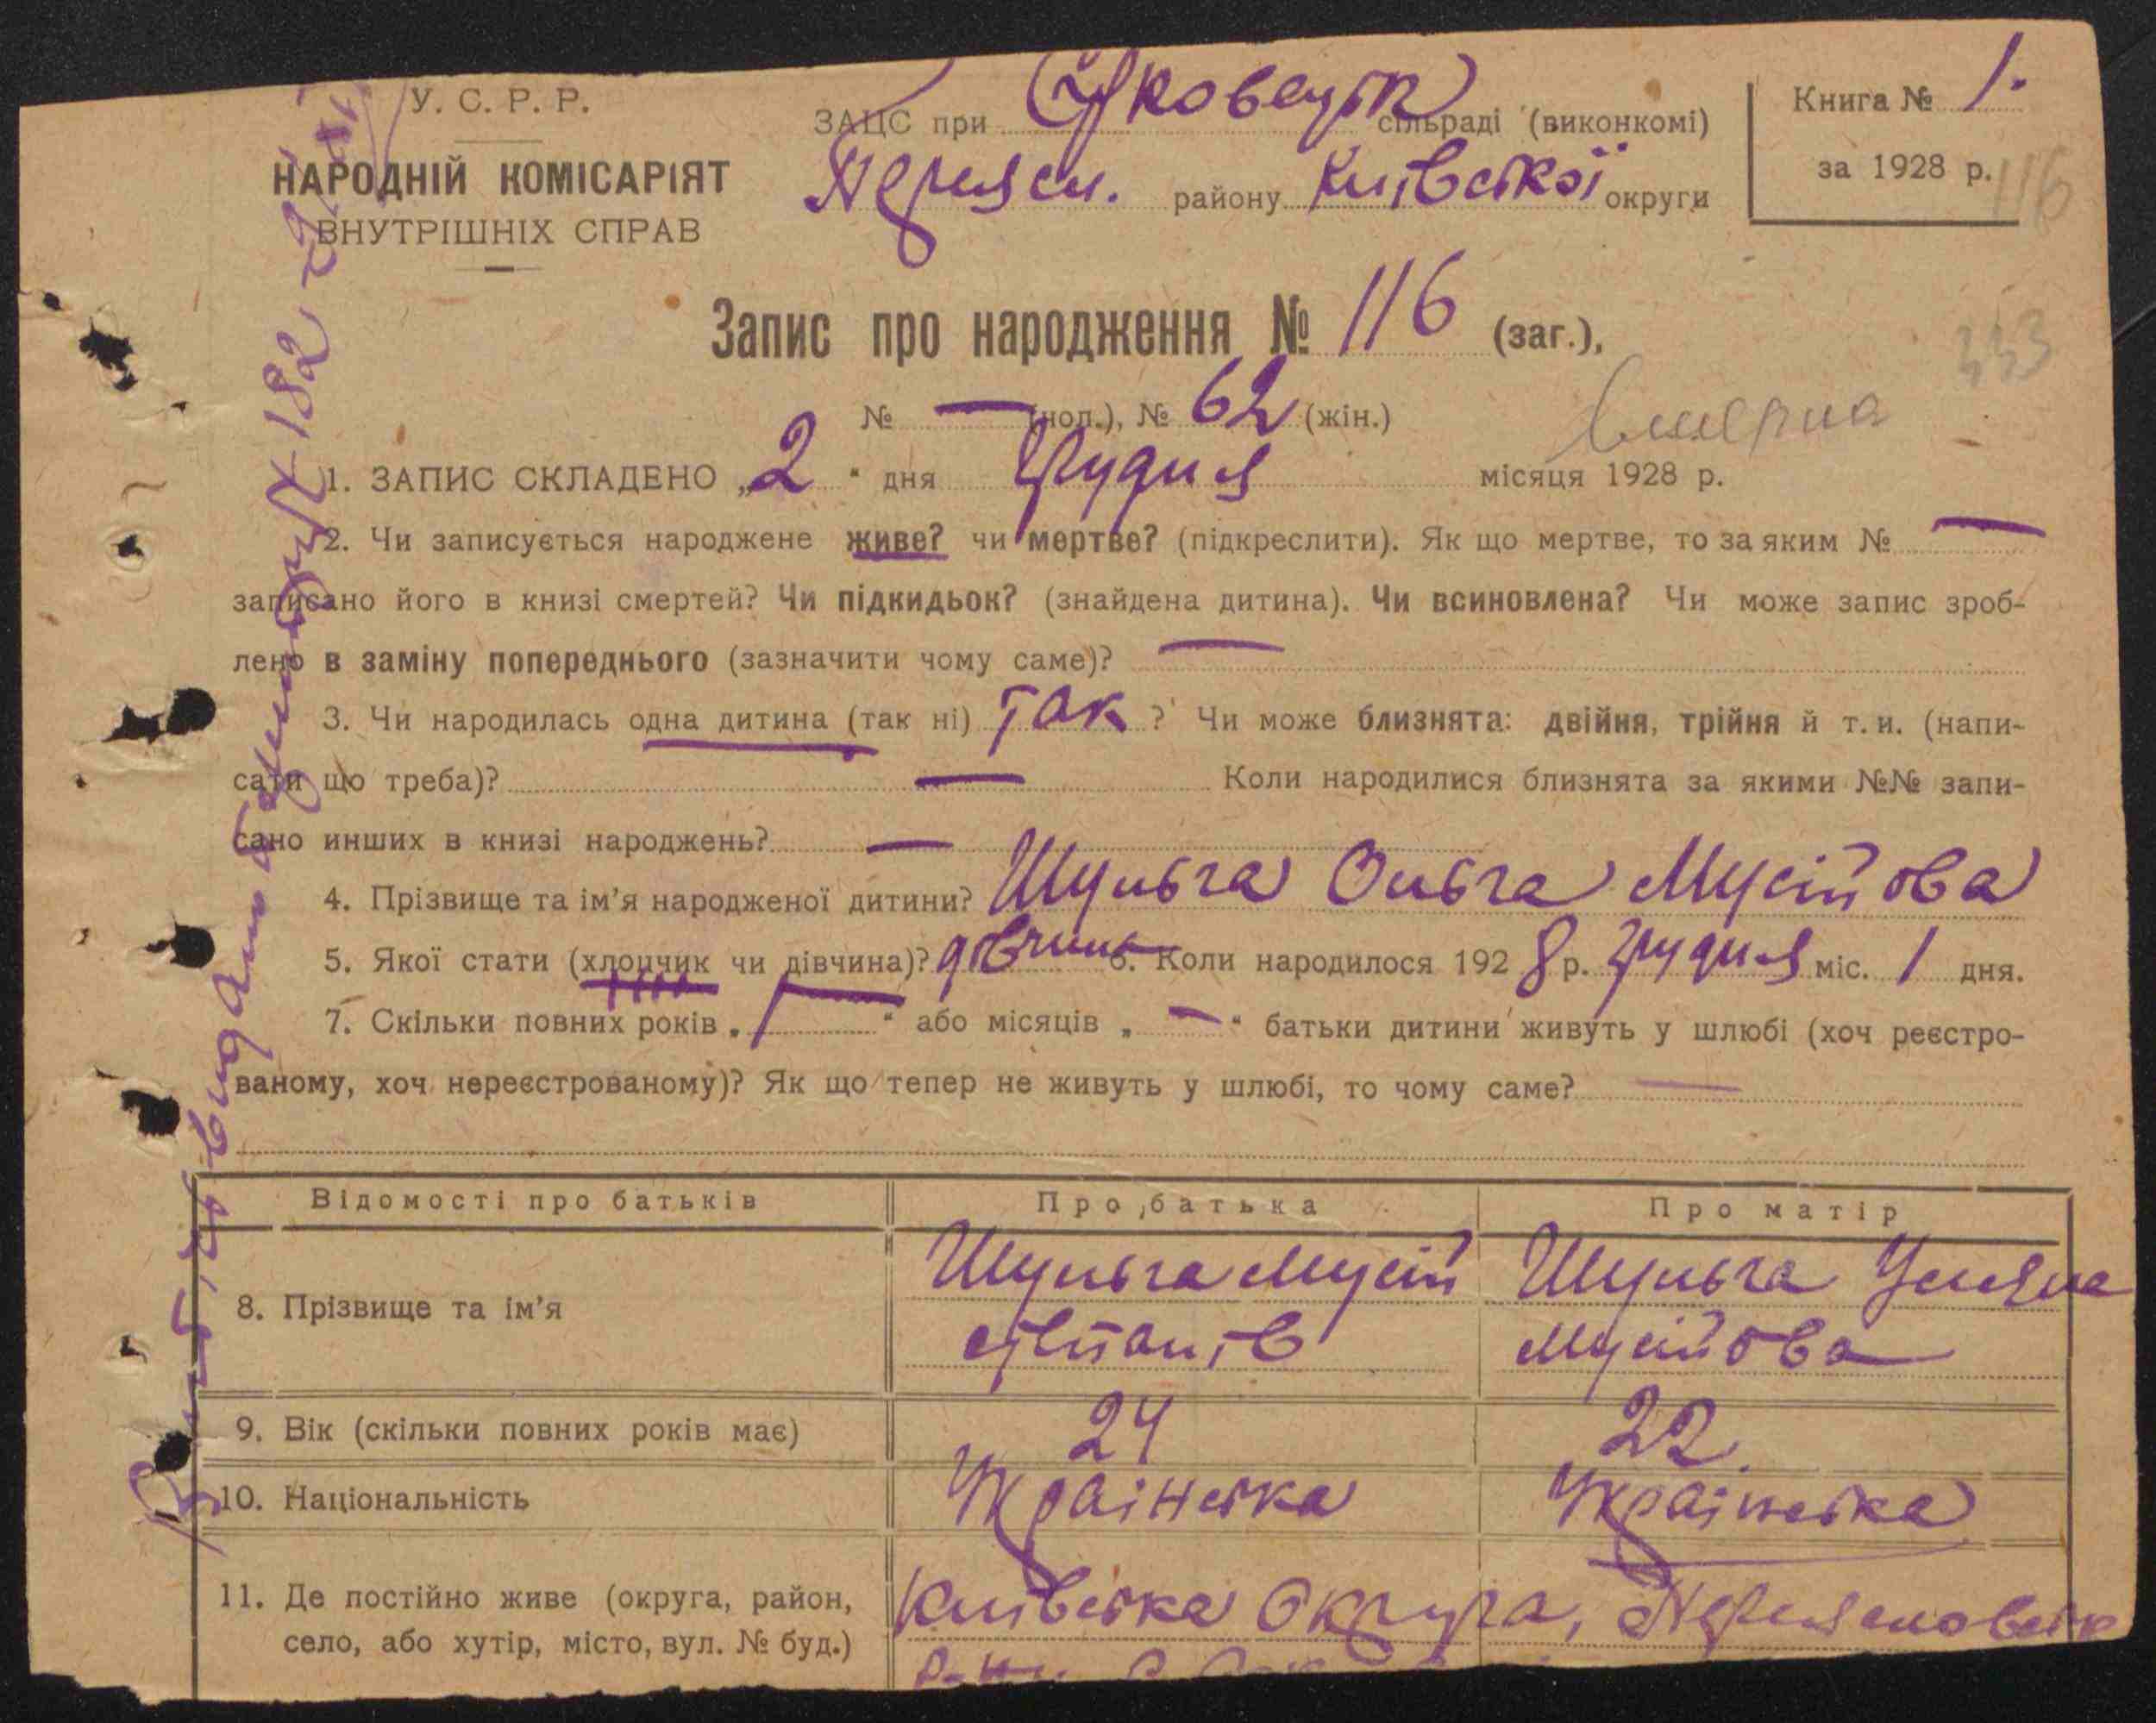 У. С. Р. Р.
НАРОДНІЙ КОМІСАРІЯТ
ВНУТРІШНІХ СПРАВ
ЗАЦС при сільраді (виконкомі)
району Київської округи
Книга № 1.
за 1928 р.
116
Запис про народження № 116 (заг.),
333
№ — (чол.), № 62 (жін.)
вмерла
1. ЗАПИС СКЛАДЕНО „2“ дня Грудня місяця 1928 р.
2. Чи записується народжене живе? чи мертве? (підкреслити). Як що мертве, то за яким № —
записано його в книзі смертей? Чи підкидьок? (знайдена дитина). Чи всиновлена? Чи може запис зроб-
лено в заміну попереднього (зазначити чому саме)? —
3. Чи народилась одна дитина (так ні) так ? Чи може близнята: двійня, трійня й т. и. (напи-
сати що треба)? — Коли народилися близнята за якими №№ запи-
сано инших в книзі народжень? —
4. Прізвище та ім'я народженої дитини? Шульга Ольга Мусійова
5. Якої стати (хлопчик чи дівчина)? дівчина 6. Коли народилося 1928 р. грудня міс. 1 дня.
7. Скільки повних років „1“ або місяців „—“ батьки дитини живуть у шлюбі (хоч реєстро-
ваному, хоч нереєстрованому)? Як що тепер не живуть у шлюбі, то чому саме? —
Відомості про батьків Про батька Про матір
8. Прізвище та ім'я Шульга Мусій Шульга Уляна
Степанів Мусійова
9. Вік (скільки повних років має) 24 22.
10. Національність Українська Українська
11. Де постійно живе (округа, район, Київська Округа,
село, або хутір, місто, вул. № буд.)